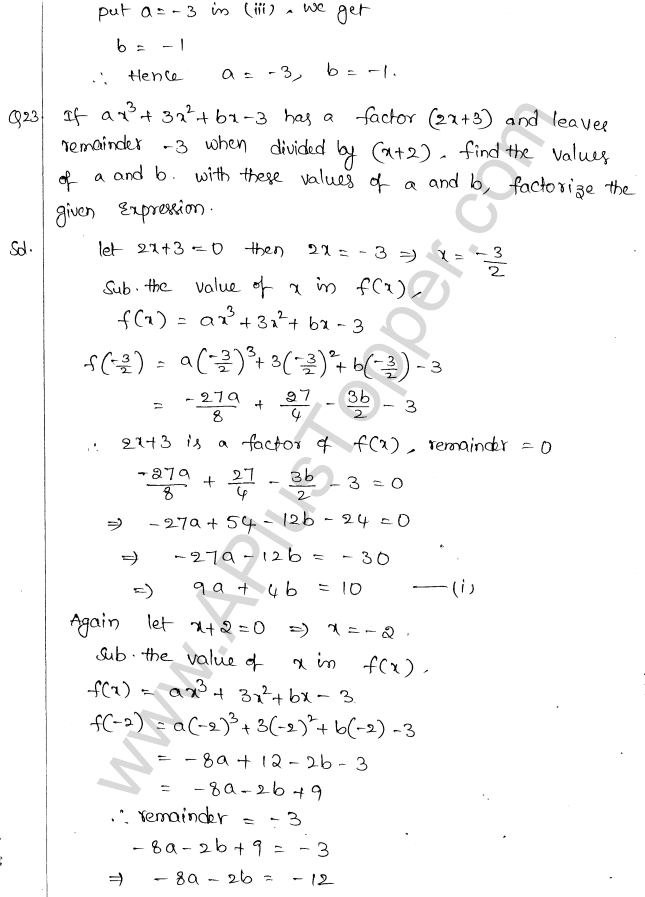 put a = -3 in (iii), we get
b = -1
∴ Hence a = -3, b = -1.
Q23 If ax³ + 3x² + bx - 3 has a factor (2x+3) and leaves
remainder -3 when divided by (x+2), find the values
of a and b. with these values of a and b, factorize the
given Expression.
Sol. let 2x+3 = 0 then 2x = -3 ⇒ x = -3/2
Sub. the value of x in f(x),
f(x) = ax³ + 3x² + bx - 3
f(-3/2) = a(-3/2)³ + 3(-3/2)² + b(-3/2) - 3
= -27a/8 + 27/4 - 3b/2 - 3
∴ 2x+3 is a factor of f(x), remainder = 0
-27a/8 + 27/4 - 3b/2 - 3 = 0
⇒ -27a + 54 - 12b - 24 = 0
⇒ -27a - 12b = -30
⇒ 9a + 4b = 10 —(i)
Again let x+2 = 0 ⇒ x = -2.
Sub. the value of x in f(x).
f(x) = ax³ + 3x² + bx - 3
f(-2) = a(-2)³ + 3(-2)² + b(-2) - 3
= -8a + 12 - 2b - 3
= -8a - 2b + 9
∴ remainder = -3
-8a - 2b + 9 = -3
⇒ -8a - 2b = -12
www.APlusTopper.com